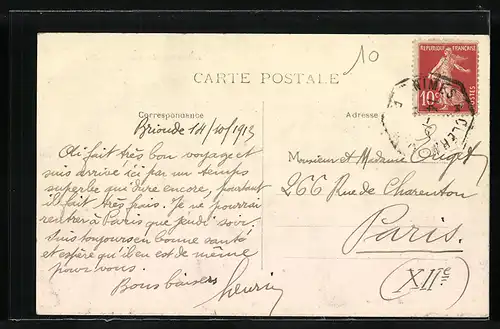 10
CARTE POSTALE
REPUBLIQUE FRANÇAISE
10c
POSTES
NIMES A CLERM
Correspondance
Adresse
Brioude 14/10/1913
Ai fait très bon voyage et
suis arrivé ici par un temps
superbe qui dure encore, pourtant
il fait très frais. Je ne pourrai
rentrer à Paris que jeudi soir.
Suis toujours en bonne santé
et espère qu'il en est de même
pour vous.
Bons baisers
Henri
Monsieur et Madame
266 Rue de Charenton
Paris.
XIIe